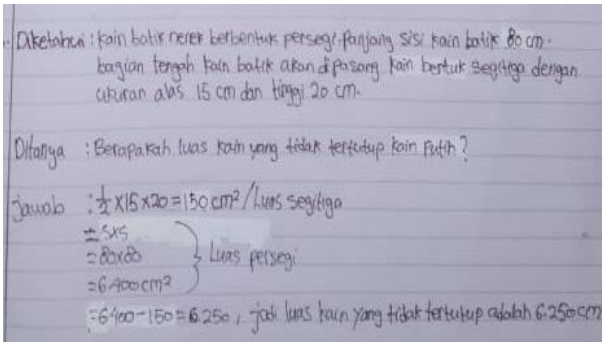 Diketahui : kain batik nenek berbentuk persegi. Panjang sisi kain batik 80 cm.
bagian tengah kain batik akan dipasang kain bentuk segitiga dengan
ukuran alas 15 cm dan tinggi 20 cm.
Ditanya : Berapakah luas kain yang tidak tertutup kain Putih ?
jawab : ½ x 15 x 20 = 150 cm² / Luas segitiga
= s x s
= 80x80 } Luas persegi
= 6400 cm²
= 6400 - 150 = 6.250 , jadi luas kain yang tidak tertutup adalah 6.250 cm